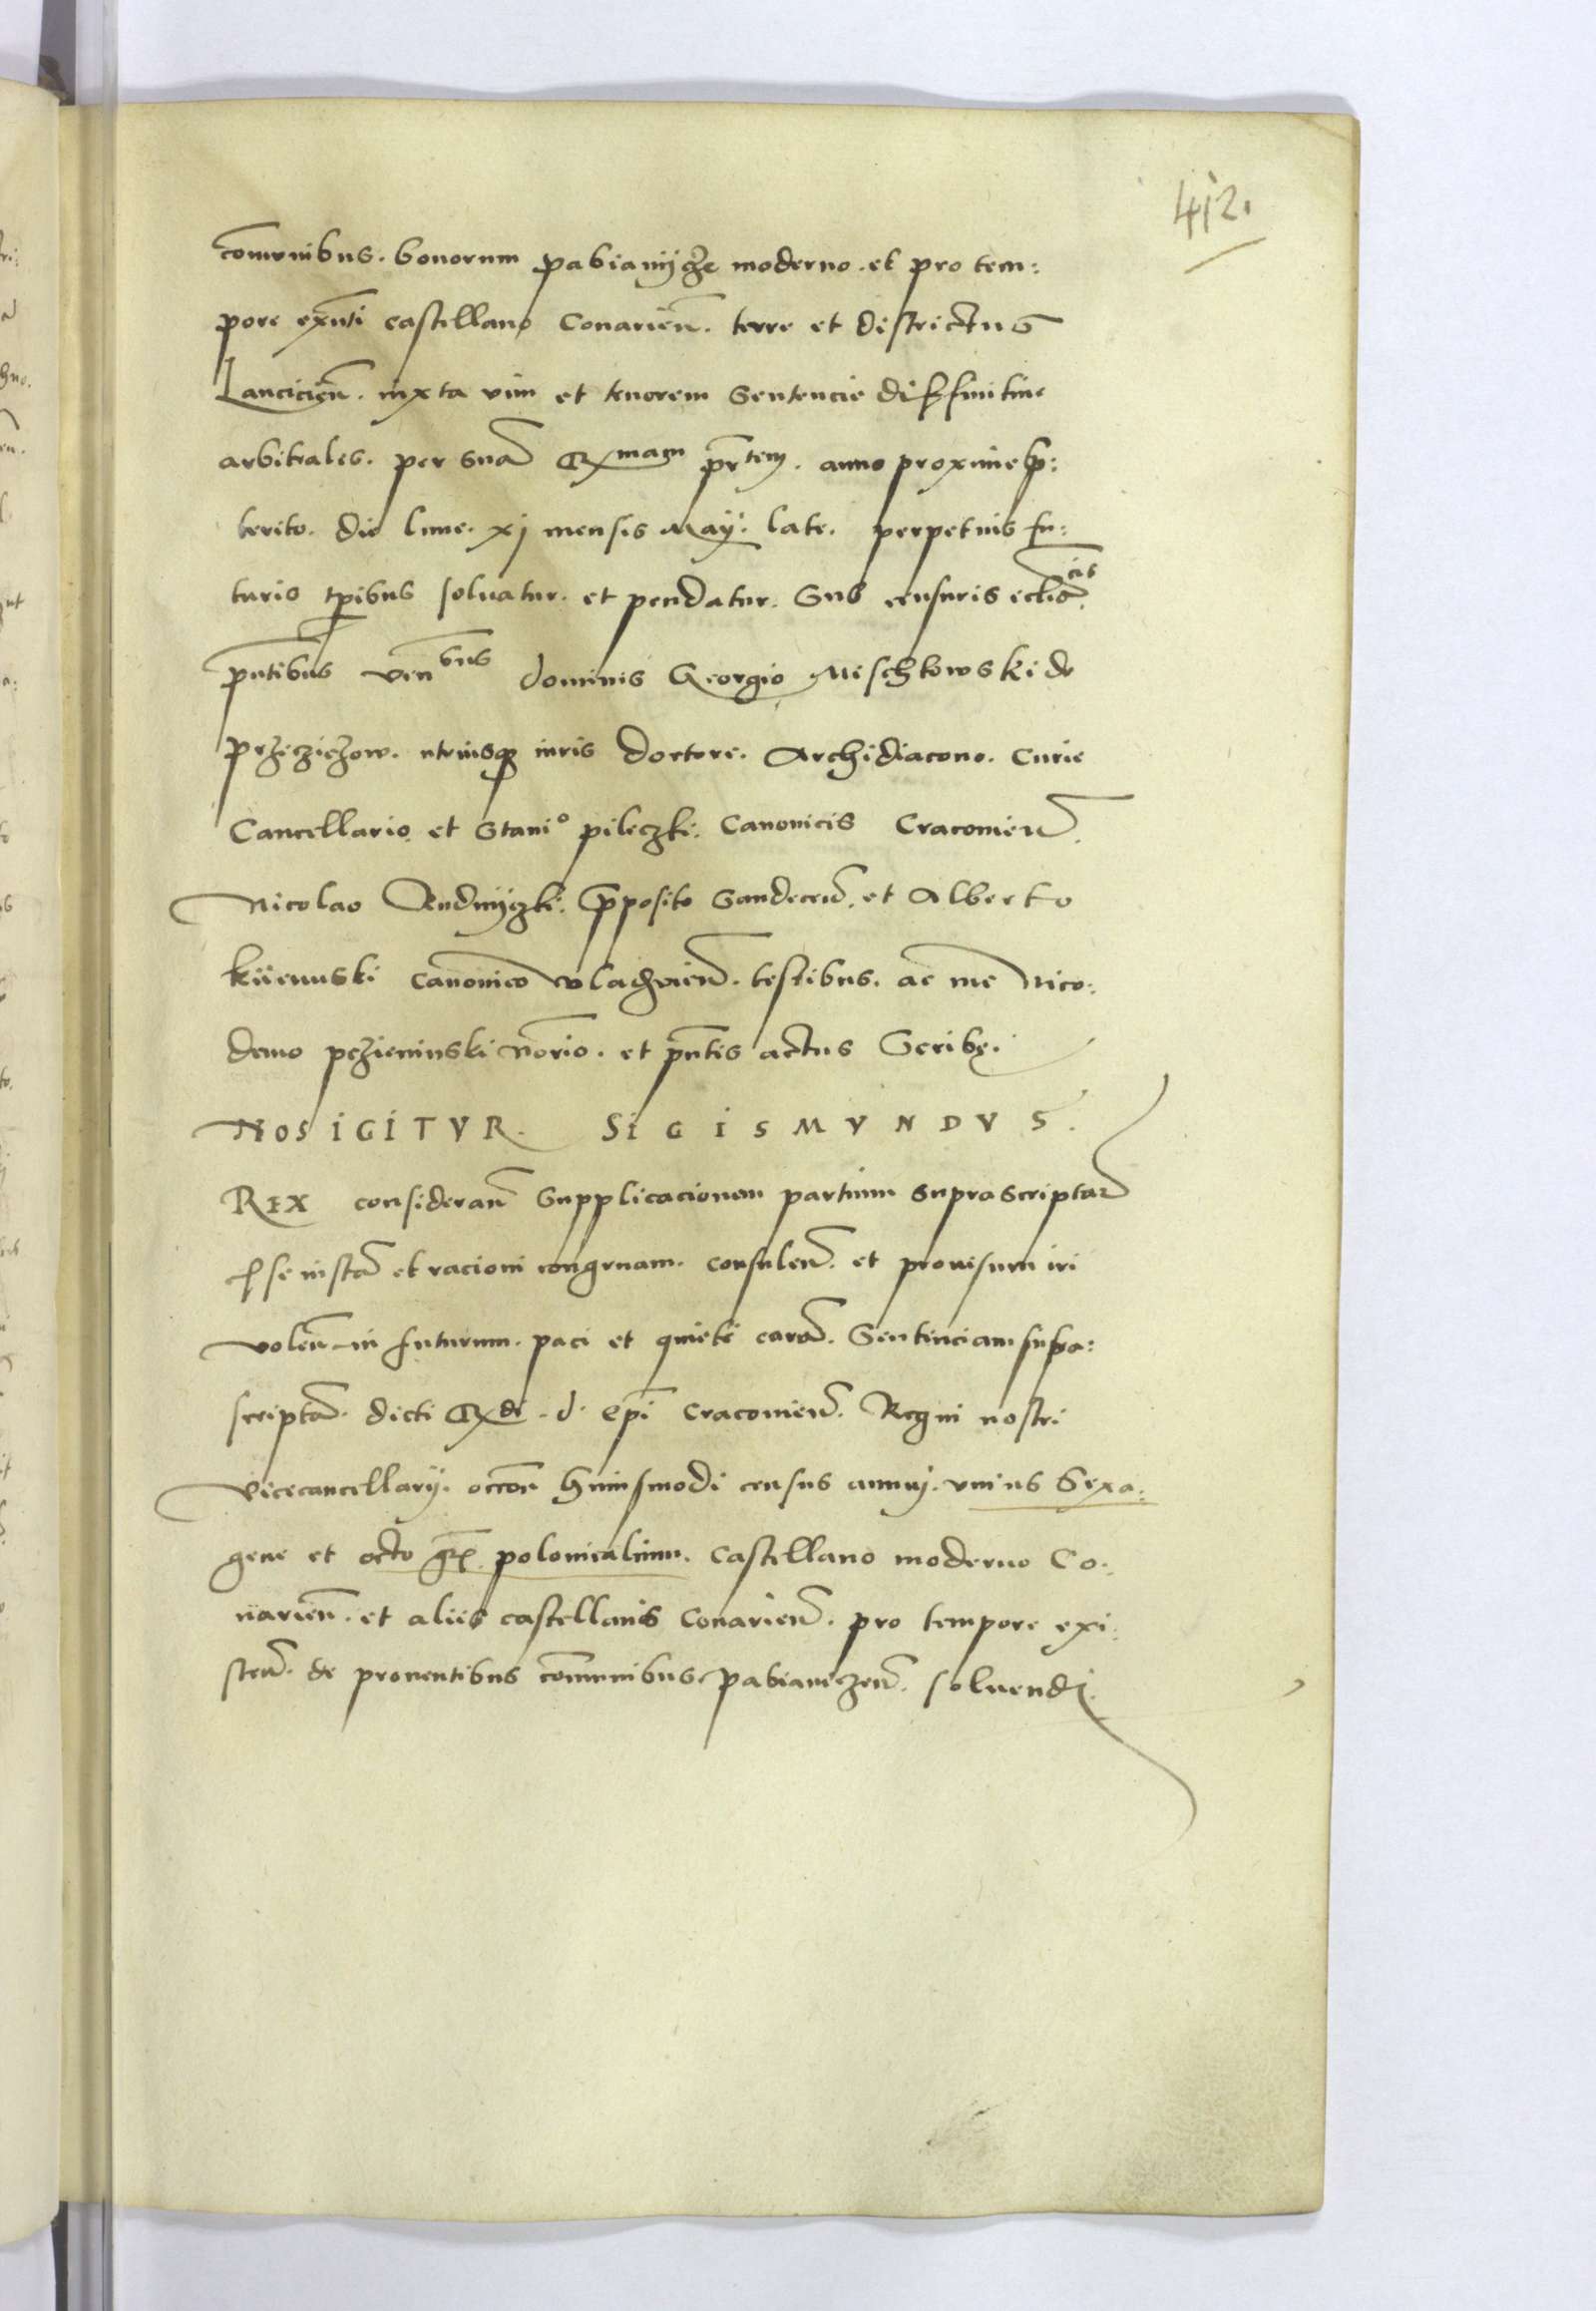 412.
com̄unibus. bonorum pabianÿcze moderno. et pro tem:
pore exn̄ti castellano Conarien̄. terre et districtus
Lancicien̄. iuxta vim et tenorem sentencie diffinitiue
arbitrales. per suā R[mam] pr̄[tem]. anno proxime p̄:
terito. die lune. xj mensis Maÿ. late. perpetuis fu:
turis tp̄ibus soluatur. et pendatur. Sub censuris eccl̄[cis]
pn̄tibus ven[bus] dominis Georgio Mischkowski de
przeczieżow. utriusq3 iuris doctore. Archidiacono. Curie
Cancellario. et Stani° pileczki. Canonicis Cracouien̄.
Nicolao p̄posito Sandecen̄. et Alberto
kijewski canonico wladislauien̄. testibus. ac me Nico:
demo not̄rio. et pn̄tis actus Scribę.
NOS IGITVR. SIGISMVNDVS.
REX consideran̄ Supplicacionem partium suprascriptar̄
esse iustā et racioni congruam. consulen̄. et prouisum iri
volen̄ in futurum. paci et quieti earū. Sentenciam supra:
scriptā. dicti R[di]. d. Ep̄i Cracouien̄. Regni nostri
Vicecancellarÿ. occōe huiusmodi census annuj. vnius Sexa:
gene et octo gr̄. polonicalium. Castellano moderno Co:
narien̄. et aliis castellanis Conarien̄. pro tempore exi:
sten̄. de prouentibus com̄unibus. pabianiczen̄. soluendi.